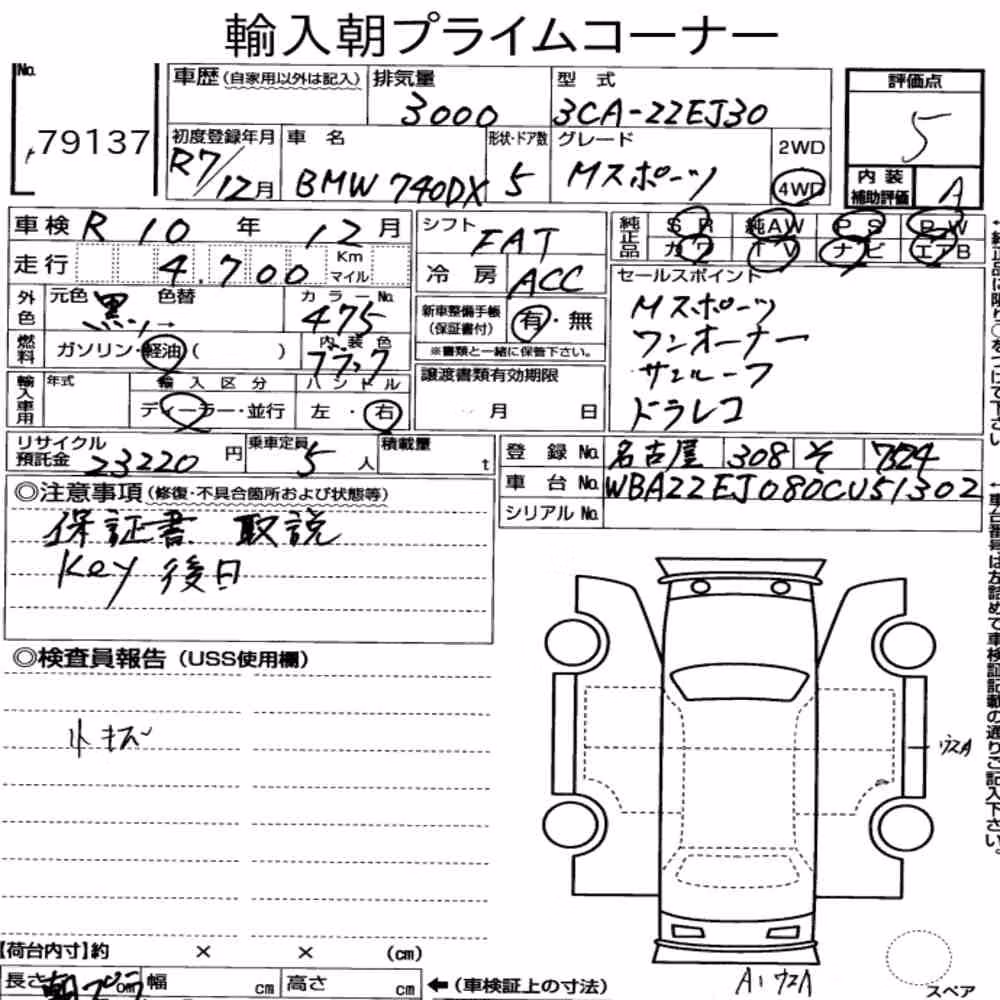 輸入朝プライムコーナー
No. 79137
車歴 (自家用以外は記入)
排気量 3000
型式 3CA-22EJ30
評価点 5
初度登録年月 R7/12月
車名 BMW 740DX
形状・ドア数 5
グレード Mスポーツ
2WD
4WD
内装補助評価 A
車検 R 10 年 12 月
走行 4,700 Km マイル
シフト FAT
冷房 ACC
純正品 SR 純AW PS PW
カワ TV ナビ エアB
外色 元色 黒 → 色替
カラーNo. 475
燃料 ガソリン・軽油( )
内装色 ブラック
新車整備手帳(保証書付) 有・無
※書類と一緒に保管下さい。
セールスポイント
Mスポーツ
ワンオーナー
サンルーフ
ドラレコ
輸入車用 年式 輸入区分 ディーラー・並行
ハンドル 左・右
譲渡書類有効期限
月 日
リサイクル預託金 23220 円
乗車定員 5 人
積載量 t
登録No. 名古屋 308 そ 7324
車台No. WBA22EJ080CU51302
シリアルNo.
◎注意事項 (修復・不具合箇所および状態等)
保証書 取説
Key 後日
◎検査員報告 (USS使用欄)
小キズ
ウスA
【荷台内寸】約 × × (cm)
長さ cm 幅 cm 高さ cm
←(車検証上の寸法)
A1 ウスA
スペア
↑純正品に限り○をつけて下さい
↑車台番号は左詰めで車検証記載の通りご記入下さい。